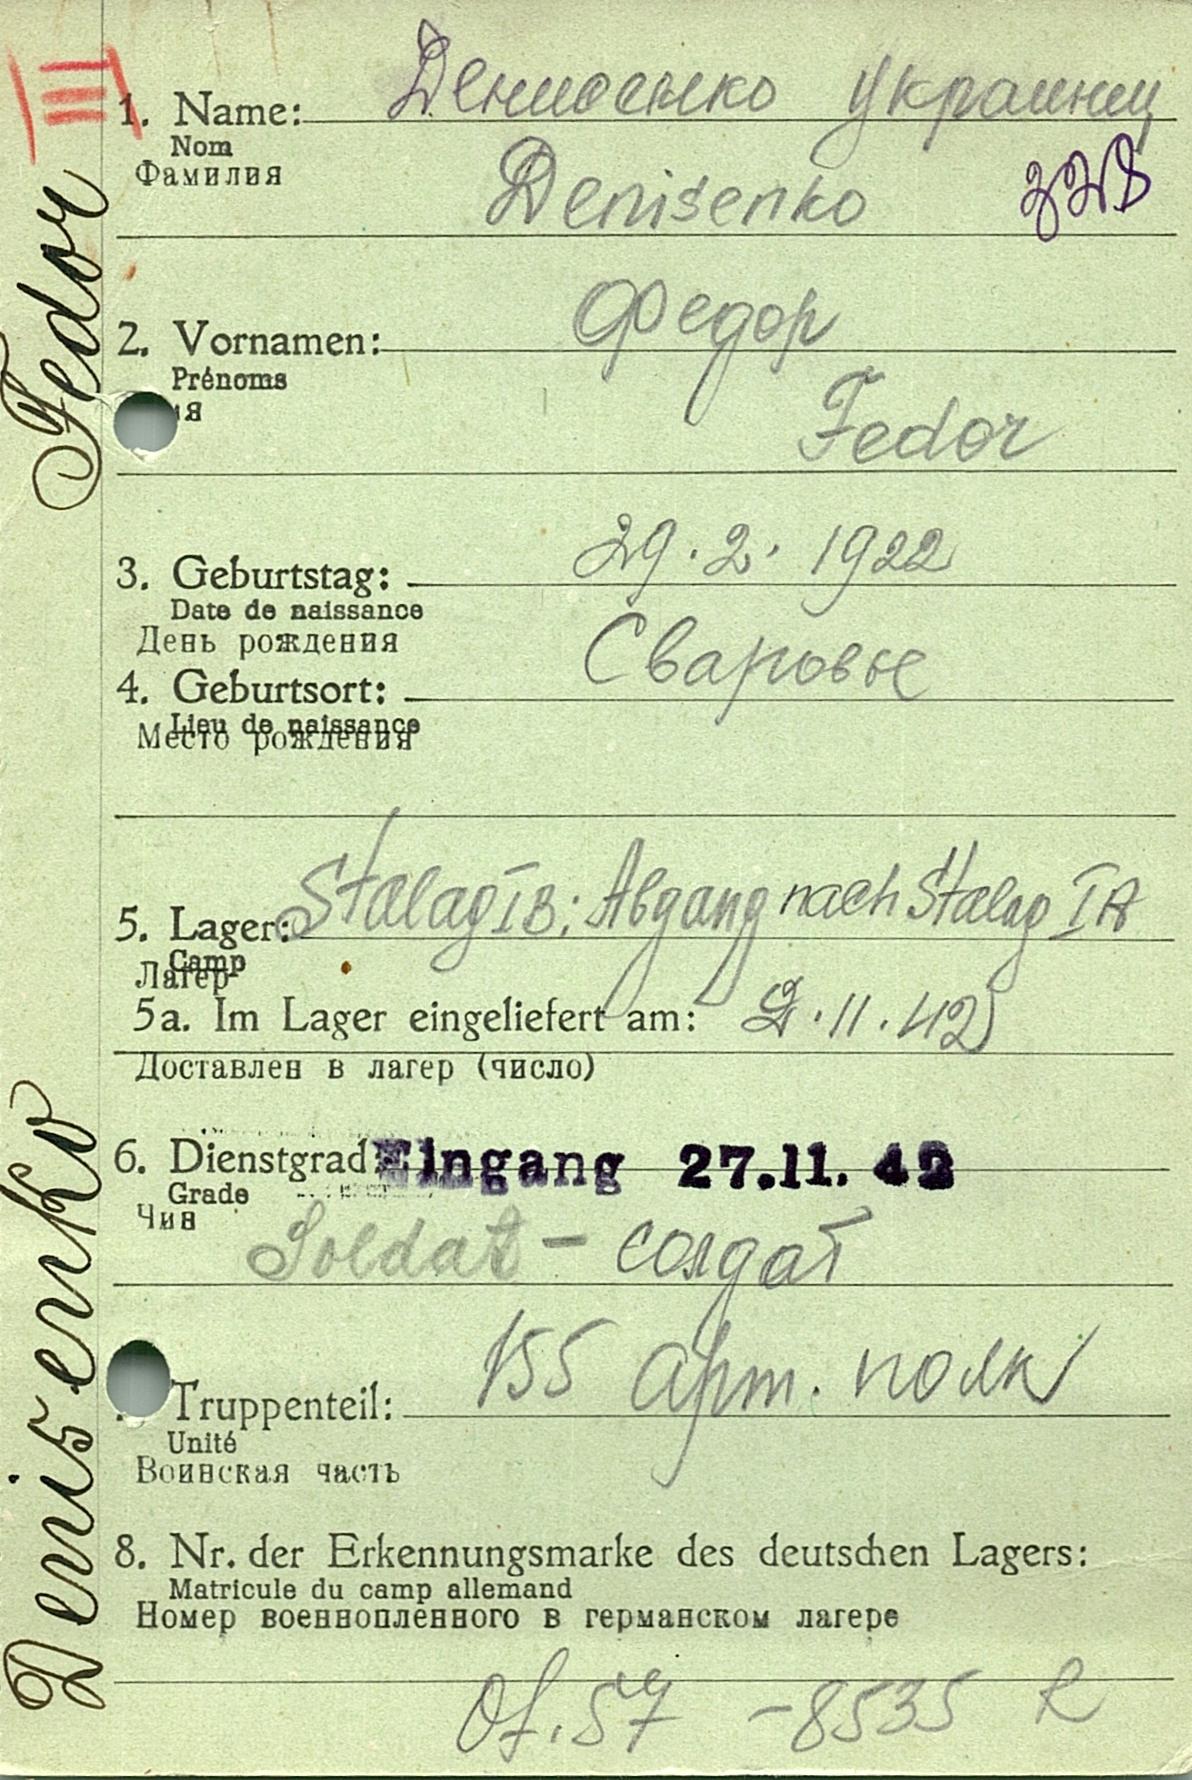 III
1. Name: Денисенко Украинец
Nom
Фамилия
Denisenko
2. Vornamen: Федор
Prénoms
ия
Fedor
3. Geburtstag: 29.2.1922
Date de naissance
День рождения
4. Geburtsort: Сваровье
Lieu de naissance
Место рождения
5. Lager: Stalag IB; Abgang nach Stalag IA
Camp
Лагер
5a. Im Lager eingeliefert am: 2.11.42
Доставлен в лагер (число)
6. Dienstgrad: Eingang 27.11.42
Grade
Чин
Soldat – солдат
Truppenteil: 155 арт. полк
Unité
Воинская часть
8. Nr. der Erkennungsmarke des deutschen Lagers:
Matricule du camp allemand
Номер военнопленного в германском лагере
Of. 57 – 8535 R
Denisenko Fedor